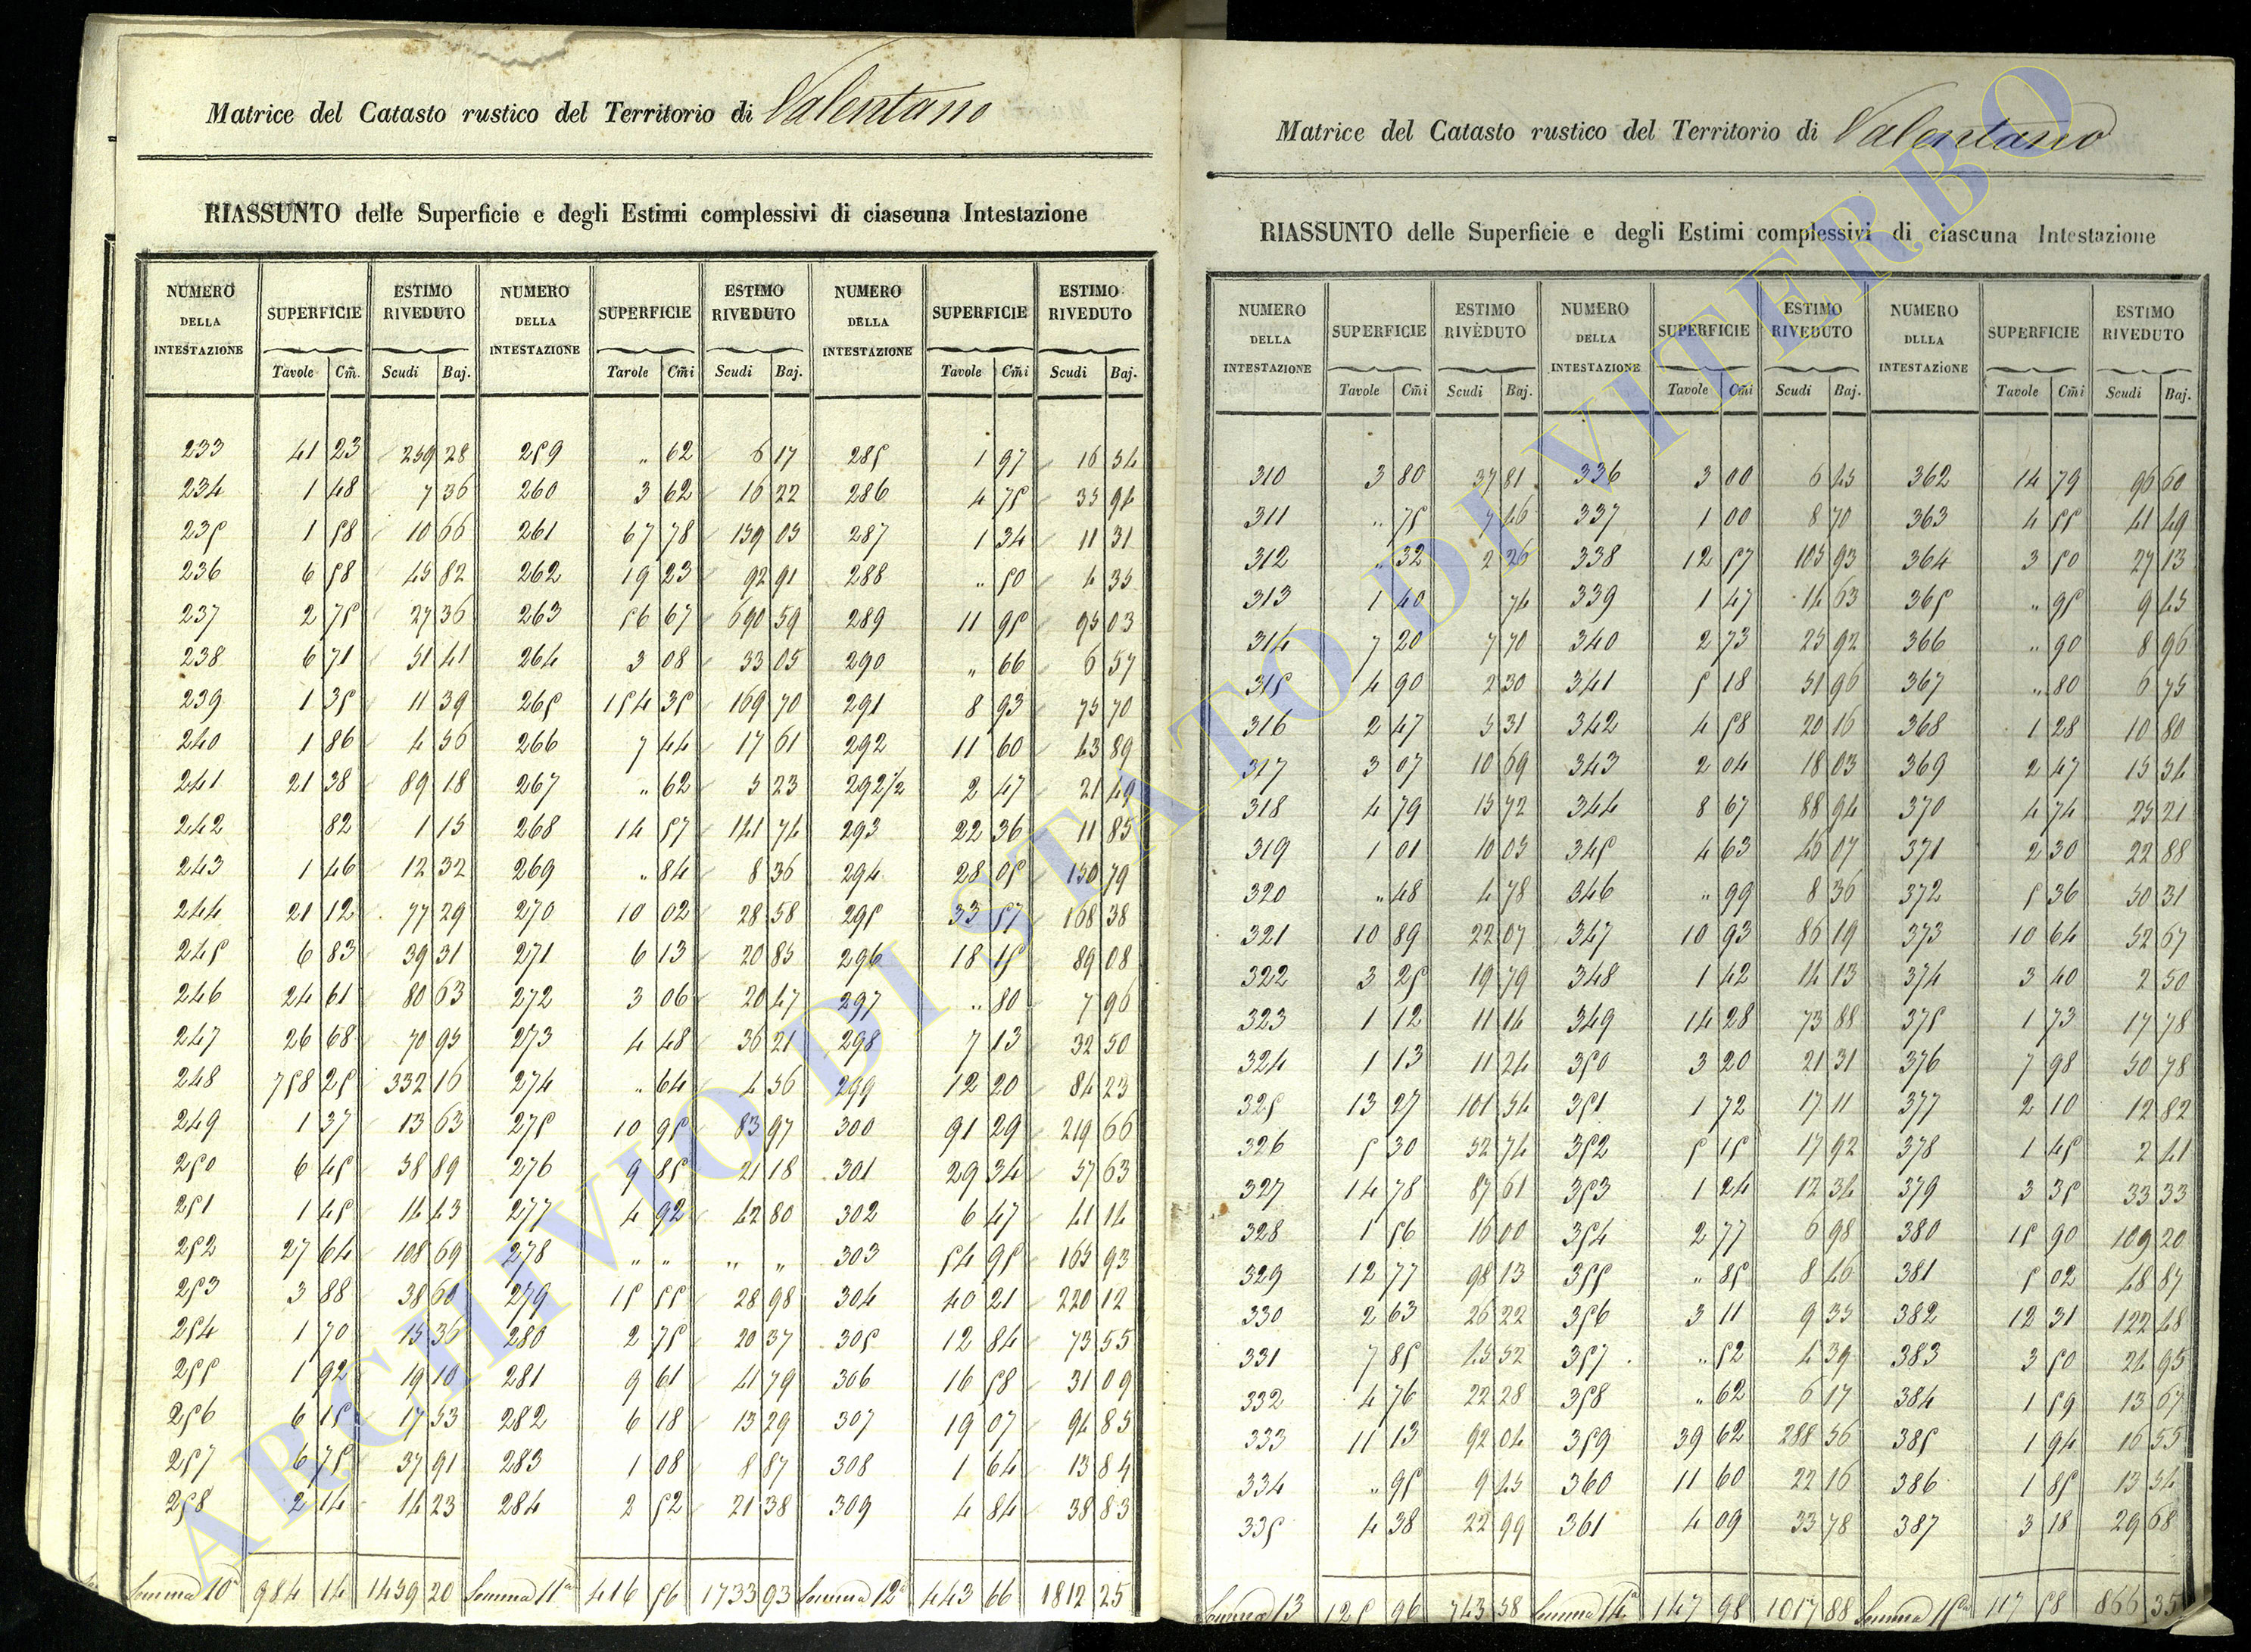 Matrice del Catasto rustico del Territorio di Valentano
RIASSUNTO delle Superficie e degli Estimi complessivi di ciascuna Intestazione
NUMERO DELLA INTESTAZIONE SUPERFICIE ESTIMO RIVEDUTO NUMERO DELLA INTESTAZIONE SUPERFICIE ESTIMO RIVEDUTO NUMERO DELLA INTESTAZIONE SUPERFICIE ESTIMO RIVEDUTO
Tavole Cm̃. Scudi Baj. Tavole Cm̃i Scudi Baj. Tavole Cm̃i Scudi Baj.
233 41 23 259 28 259 „ 62 6 17 285 1 97 16 54
234 1 48 7 36 260 3 62 16 22 286 4 75 35 94
235 1 58 10 66 261 67 78 159 05 287 1 34 11 31
236 6 58 45 82 262 19 23 92 91 288 „ 50 4 35
237 2 75 27 36 263 56 67 690 59 289 11 95 95 03
238 6 71 51 41 264 3 08 33 05 290 „ 66 6 57
239 1 35 11 39 265 154 35 169 70 291 8 93 75 70
240 1 86 4 56 266 7 44 17 61 292 11 60 43 89
241 21 38 89 18 267 „ 62 5 23 292½ 2 47 21 49
242 82 1 15 268 14 57 141 74 293 22 36 11 85
243 1 46 12 32 269 „ 84 8 36 294 28 05 150 79
244 21 12 77 29 270 10 02 28 58 295 33 57 168 38
245 6 83 39 31 271 6 13 20 85 296 18 15 89 08
246 24 61 80 63 272 3 06 20 47 297 „ 80 7 96
247 26 68 70 95 273 4 48 36 21 298 7 13 32 50
248 758 25 332 16 274 „ 64 4 56 299 12 20 84 23
249 1 37 13 63 275 10 95 83 97 300 91 29 219 66
250 6 45 58 89 276 9 85 21 18 301 29 34 57 63
251 1 45 14 43 277 4 92 42 80 302 6 47 41 14
252 27 64 108 69 278 „ „ „ „ 303 54 95 165 93
253 3 88 38 60 279 15 55 28 98 304 40 21 220 12
254 1 70 15 36 280 2 75 20 37 305 12 84 73 55
255 1 92 19 10 281 9 61 41 79 306 16 58 31 09
256 6 15 17 53 282 6 18 13 29 307 19 07 94 85
257 6 75 37 91 283 1 08 8 87 308 1 64 13 84
258 2 14 14 23 284 2 52 21 38 309 4 84 38 83
Somma 10ª 984 14 1459 20 Somma 11ª 416 56 1733 93 Somma 12ª 443 66 1812 25
Matrice del Catasto rustico del Territorio di Valentano
RIASSUNTO delle Superficie e degli Estimi complessivi di ciascuna Intestazione
NUMERO DELLA INTESTAZIONE SUPERFICIE ESTIMO RIVEDUTO NUMERO DELLA INTESTAZIONE SUPERFICIE ESTIMO RIVEDUTO NUMERO DLLLA INTESTAZIONE SUPERFICIE ESTIMO RIVEDUTO
Tavole Cm̃i Scudi Baj. Tavole Cm̃i Scudi Baj. Tavole Cm̃i Scudi Baj.
310 3 80 37 81 336 3 00 6 45 362 14 79 96 60
311 „ 75 7 46 337 1 00 8 70 363 4 55 41 49
312 „ 32 2 26 338 12 57 105 93 364 3 50 27 13
313 1 40 74 339 1 47 14 63 365 „ 95 9 45
314 7 20 7 70 340 2 73 25 92 366 „ 90 8 96
315 4 90 2 30 341 5 18 51 96 367 „ 80 6 75
316 2 47 5 31 342 4 58 20 16 368 1 28 10 80
317 3 07 10 69 343 2 04 18 03 369 2 47 15 54
318 4 79 15 72 344 8 67 88 94 370 4 74 25 21
319 1 01 10 05 345 4 63 46 07 371 2 30 22 88
320 „ 48 4 78 346 „ 99 8 36 372 5 36 50 31
321 10 89 22 07 347 10 93 86 19 373 10 64 52 67
322 3 25 19 79 348 1 42 14 13 374 3 40 2 50
323 1 12 11 14 349 14 28 73 88 375 1 73 17 78
324 1 13 11 24 350 3 20 21 31 376 7 98 50 78
325 13 27 101 54 351 1 72 17 11 377 2 10 12 82
326 5 30 52 74 352 5 15 17 92 378 1 45 2 41
327 14 78 87 61 353 1 24 12 34 379 3 35 33 33
328 1 56 16 00 354 2 77 6 98 380 15 90 109 20
329 12 77 98 13 355 „ 85 8 46 381 5 02 48 87
330 2 63 26 22 356 3 11 9 35 382 12 31 122 48
331 7 85 45 52 357 „ 52 4 39 383 3 50 24 95
332 4 76 22 28 358 „ 62 6 17 384 1 59 13 67
333 11 13 92 04 359 39 62 288 56 385 1 94 16 55
334 „ 95 9 45 360 11 60 22 16 386 1 85 13 54
335 4 38 22 99 361 4 09 33 78 387 3 18 29 68
Somma 13 125 96 743 58 Somma 14ª 147 98 1017 88 Somma 15ª 117 58 866 35
ARCHIVIO DI STATO DI VITERBO